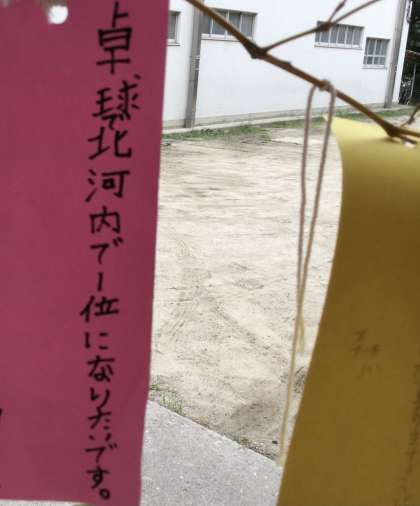 卓球で北河内で1位になりたいです。